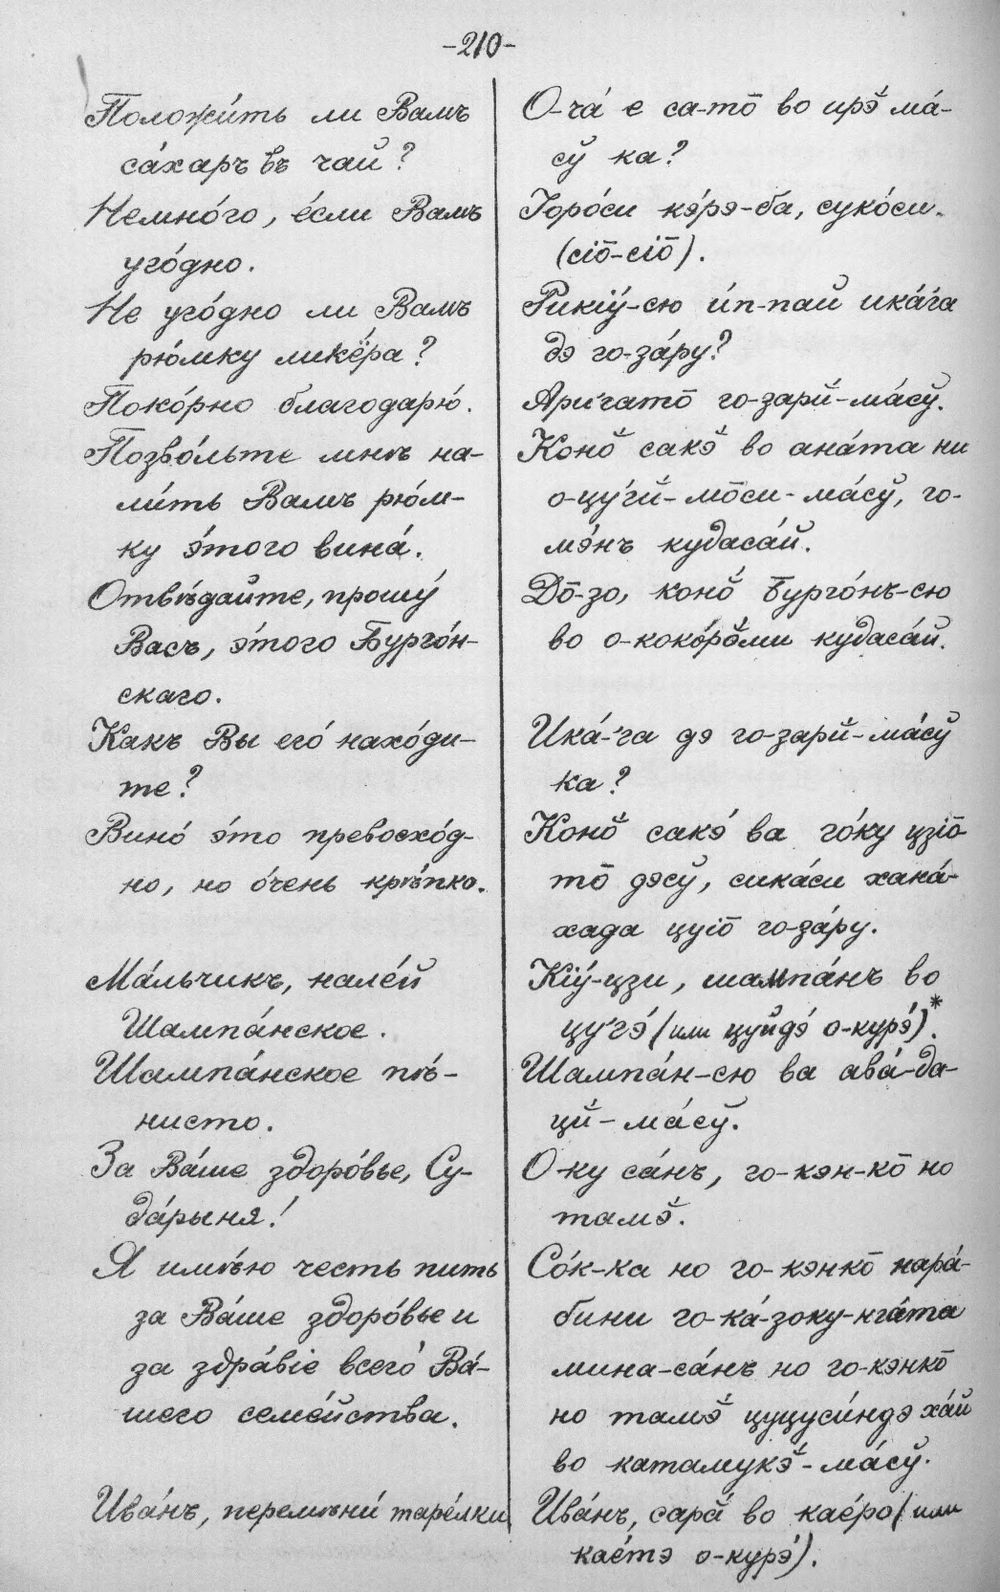 -210-
Положи́ть ли Вамъ
са́харъ въ чай?
Немно́го, е́сли Вамъ
уго́дно.
Не уго́дно ли Вамъ
рю́мку ликёра?
Поко́рно благодарю́.
Позво́льте мнѣ на-
ли́ть Вамъ рю́м-
ку э́того вина́.
Отвѣ́дайте, прошу́
Васъ, э́того Бурго́н-
скаго.
Какъ Вы его́ нахо́ди-
те?
Вино́ э́то превосхо́д-
но, но о́чень крѣ́пко.
Ма́льчикъ, нале́й
Шампа́нское.
Шампа́нское пѣ-
нисто.
За Ва́ше здоро́вье, Су-
да́рыня!
Я имѣ́ю честь пить
за Ва́ше здоро́вье и
за здра́віе всего́ Ва́-
шего семе́йства.
Ива́нъ, перемѣни́ таре́лки
О-ча́ е са-то̄ во ирэ̆ ма́-
сў ка?
Іоро́си кэ́рэ-ба, суко́си.
(сіо̄-сіо̄).
Рикіӯ-сю и́п-пай ика́га
дэ го-за́ру?
Аригато̄ го-зарй-ма́сў.
Коно̆ сакэ̆ во ана́та ни
о-цу́гй-мо̄си-ма́сў, го-
мэ́нъ кудаса́й.
До̄-зо, коно̆ Бурго́нъ-сю
во о-коко́ро̆ми кудаса́й.
Ика́-га дэ го-зарй-ма́сў
ка?
Коно̆ сакэ́ ва го́ку цзіо̄-
то̄ дэсў, сика́си хана́-
хада цуіо̄ го-за́ру.
Кіу́-цзи, шампа́нъ во
цугэ́ (или цуйдэ́ о-курэ́)*.
Шампа́н-сю ва ава́-да-
цй-ма́сў.
О-ку са́нъ, го-кэн-ко̄ но
тамэ̆.
Со́к-ка но го-кэнко̄ нара́-
бини го-ка́-зоку-нга́та
мина-са́нъ но го-кэнко̄
но тамэ̆ цуцуси́ндэ ха́й
во катамукэ̆-ма́сў.
Ива́нъ, сарӑ во кае́ро (или
кае́тэ о-курэ́).